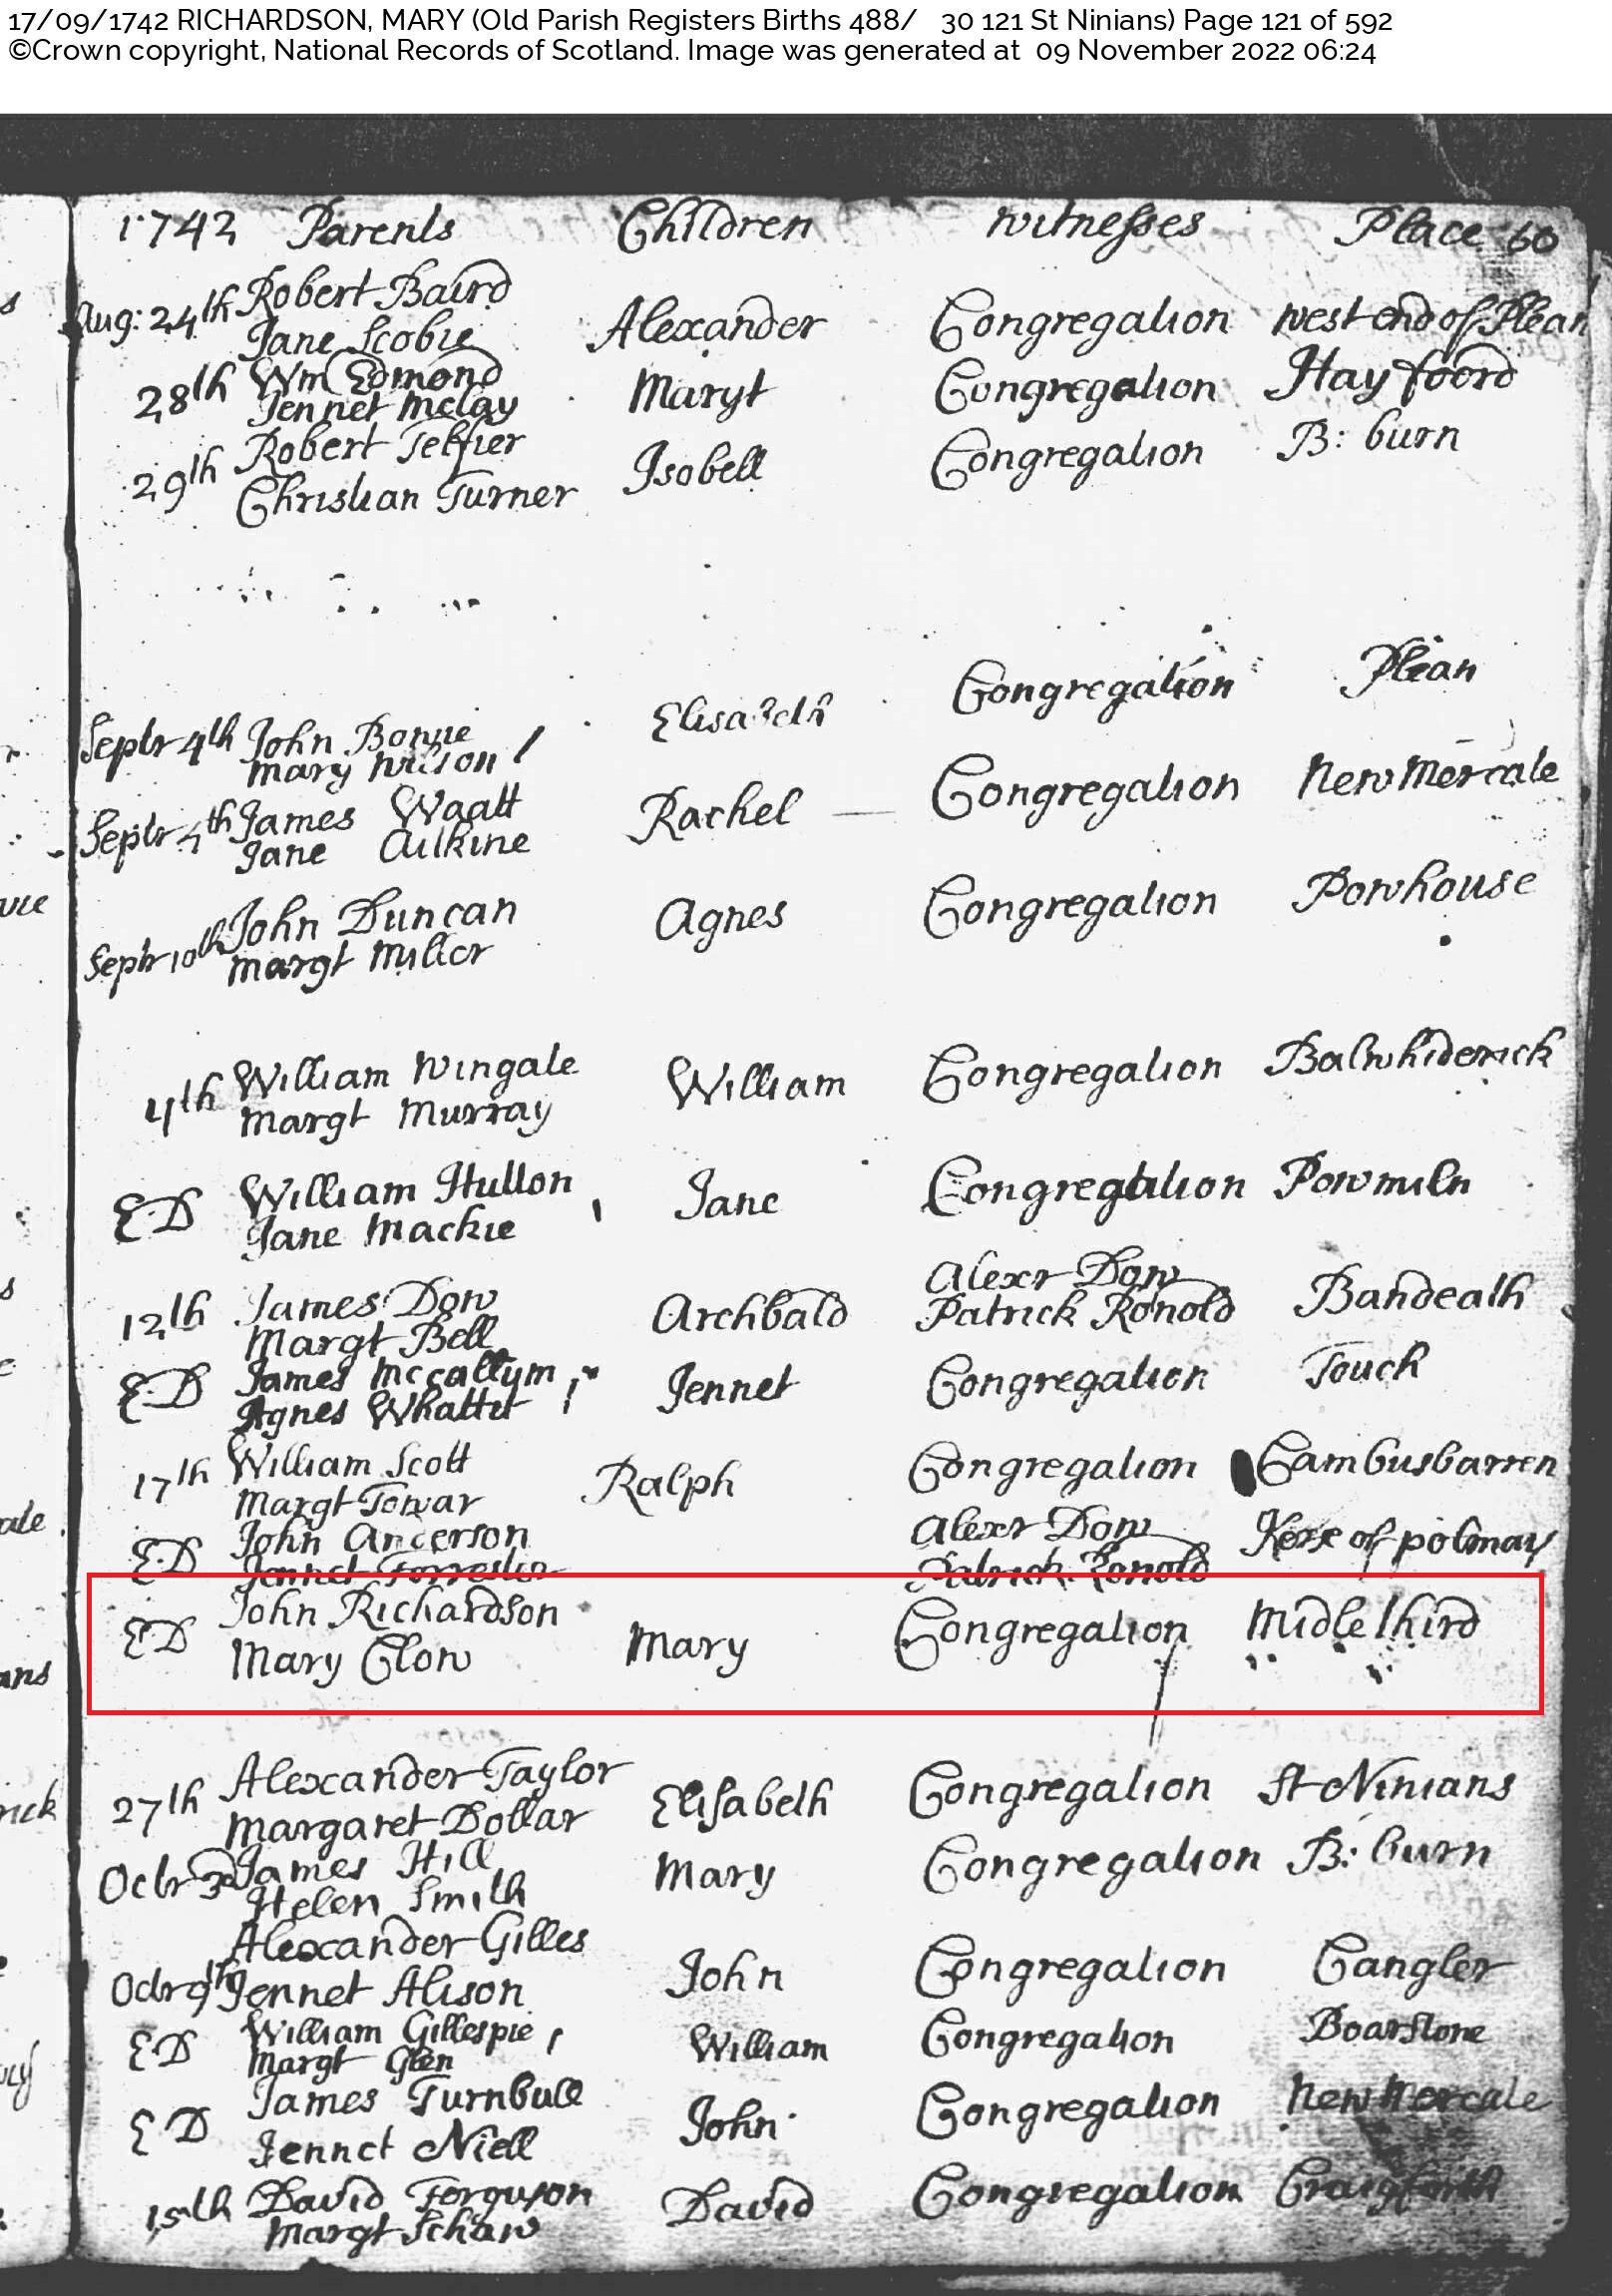 17/09/1742 RICHARDSON, MARY (Old Parish Registers Births 488/ 30 121 St Ninians) Page 121 of 592
©Crown copyright, National Records of Scotland. Image was generated at 09 November 2022 06:24
1742 Parents Children Witnesses Place 60
Aug: 24th Robert Baird
Jane Scobie Alexander Congregation West end of Plean
28th Wm Edmond
Jennet Mclay Maryt Congregation Hay foord
29th Robert Telfier
Christian Turner Isobell Congregation B: burn
Septr 4th John
Mary Wilson Elisabeth Congregation Plean
Septr 4th James Waatt
Jane Aitkine Rachel Congregation New Mercate
Septr 10th John Duncan
Margt Miller Agnes Congregation Powhouse
4th William Wingate
Margt Murray William Congregation Balwhiderick
ED William Hutton
Jane Mackie Jane Congregation Powmiln
12th James Dow
Margt Bell Archbald Alexr Dow
Patrick Ronold Bandeath
ED James Mccallum
Agnes Jennet Congregation Touch
17th William Scott
Margt Towar Ralph Congregation Cambusbarren
ED John Anderson
Jennet Forrester Alexr Dow
Patrick Ronold Kerse of polmay
ED John Richardson
Mary Clow Mary Congregation Midle third
27th Alexander Taylor
Margaret Dollar Elisabeth Congregation St Ninians
Octr 3d James Hill
Helen Smith Mary Congregation B: burn
Alexander Gilles
Octr 9th Jennet Alison John Congregation Cangler
ED William Gillespie
Margt Glen William Congregation Boarstone
ED James Turnbull
Jennet Niell John Congregation New Mercate
15th David Ferguson
Margt Schaw David Congregation Craigforth